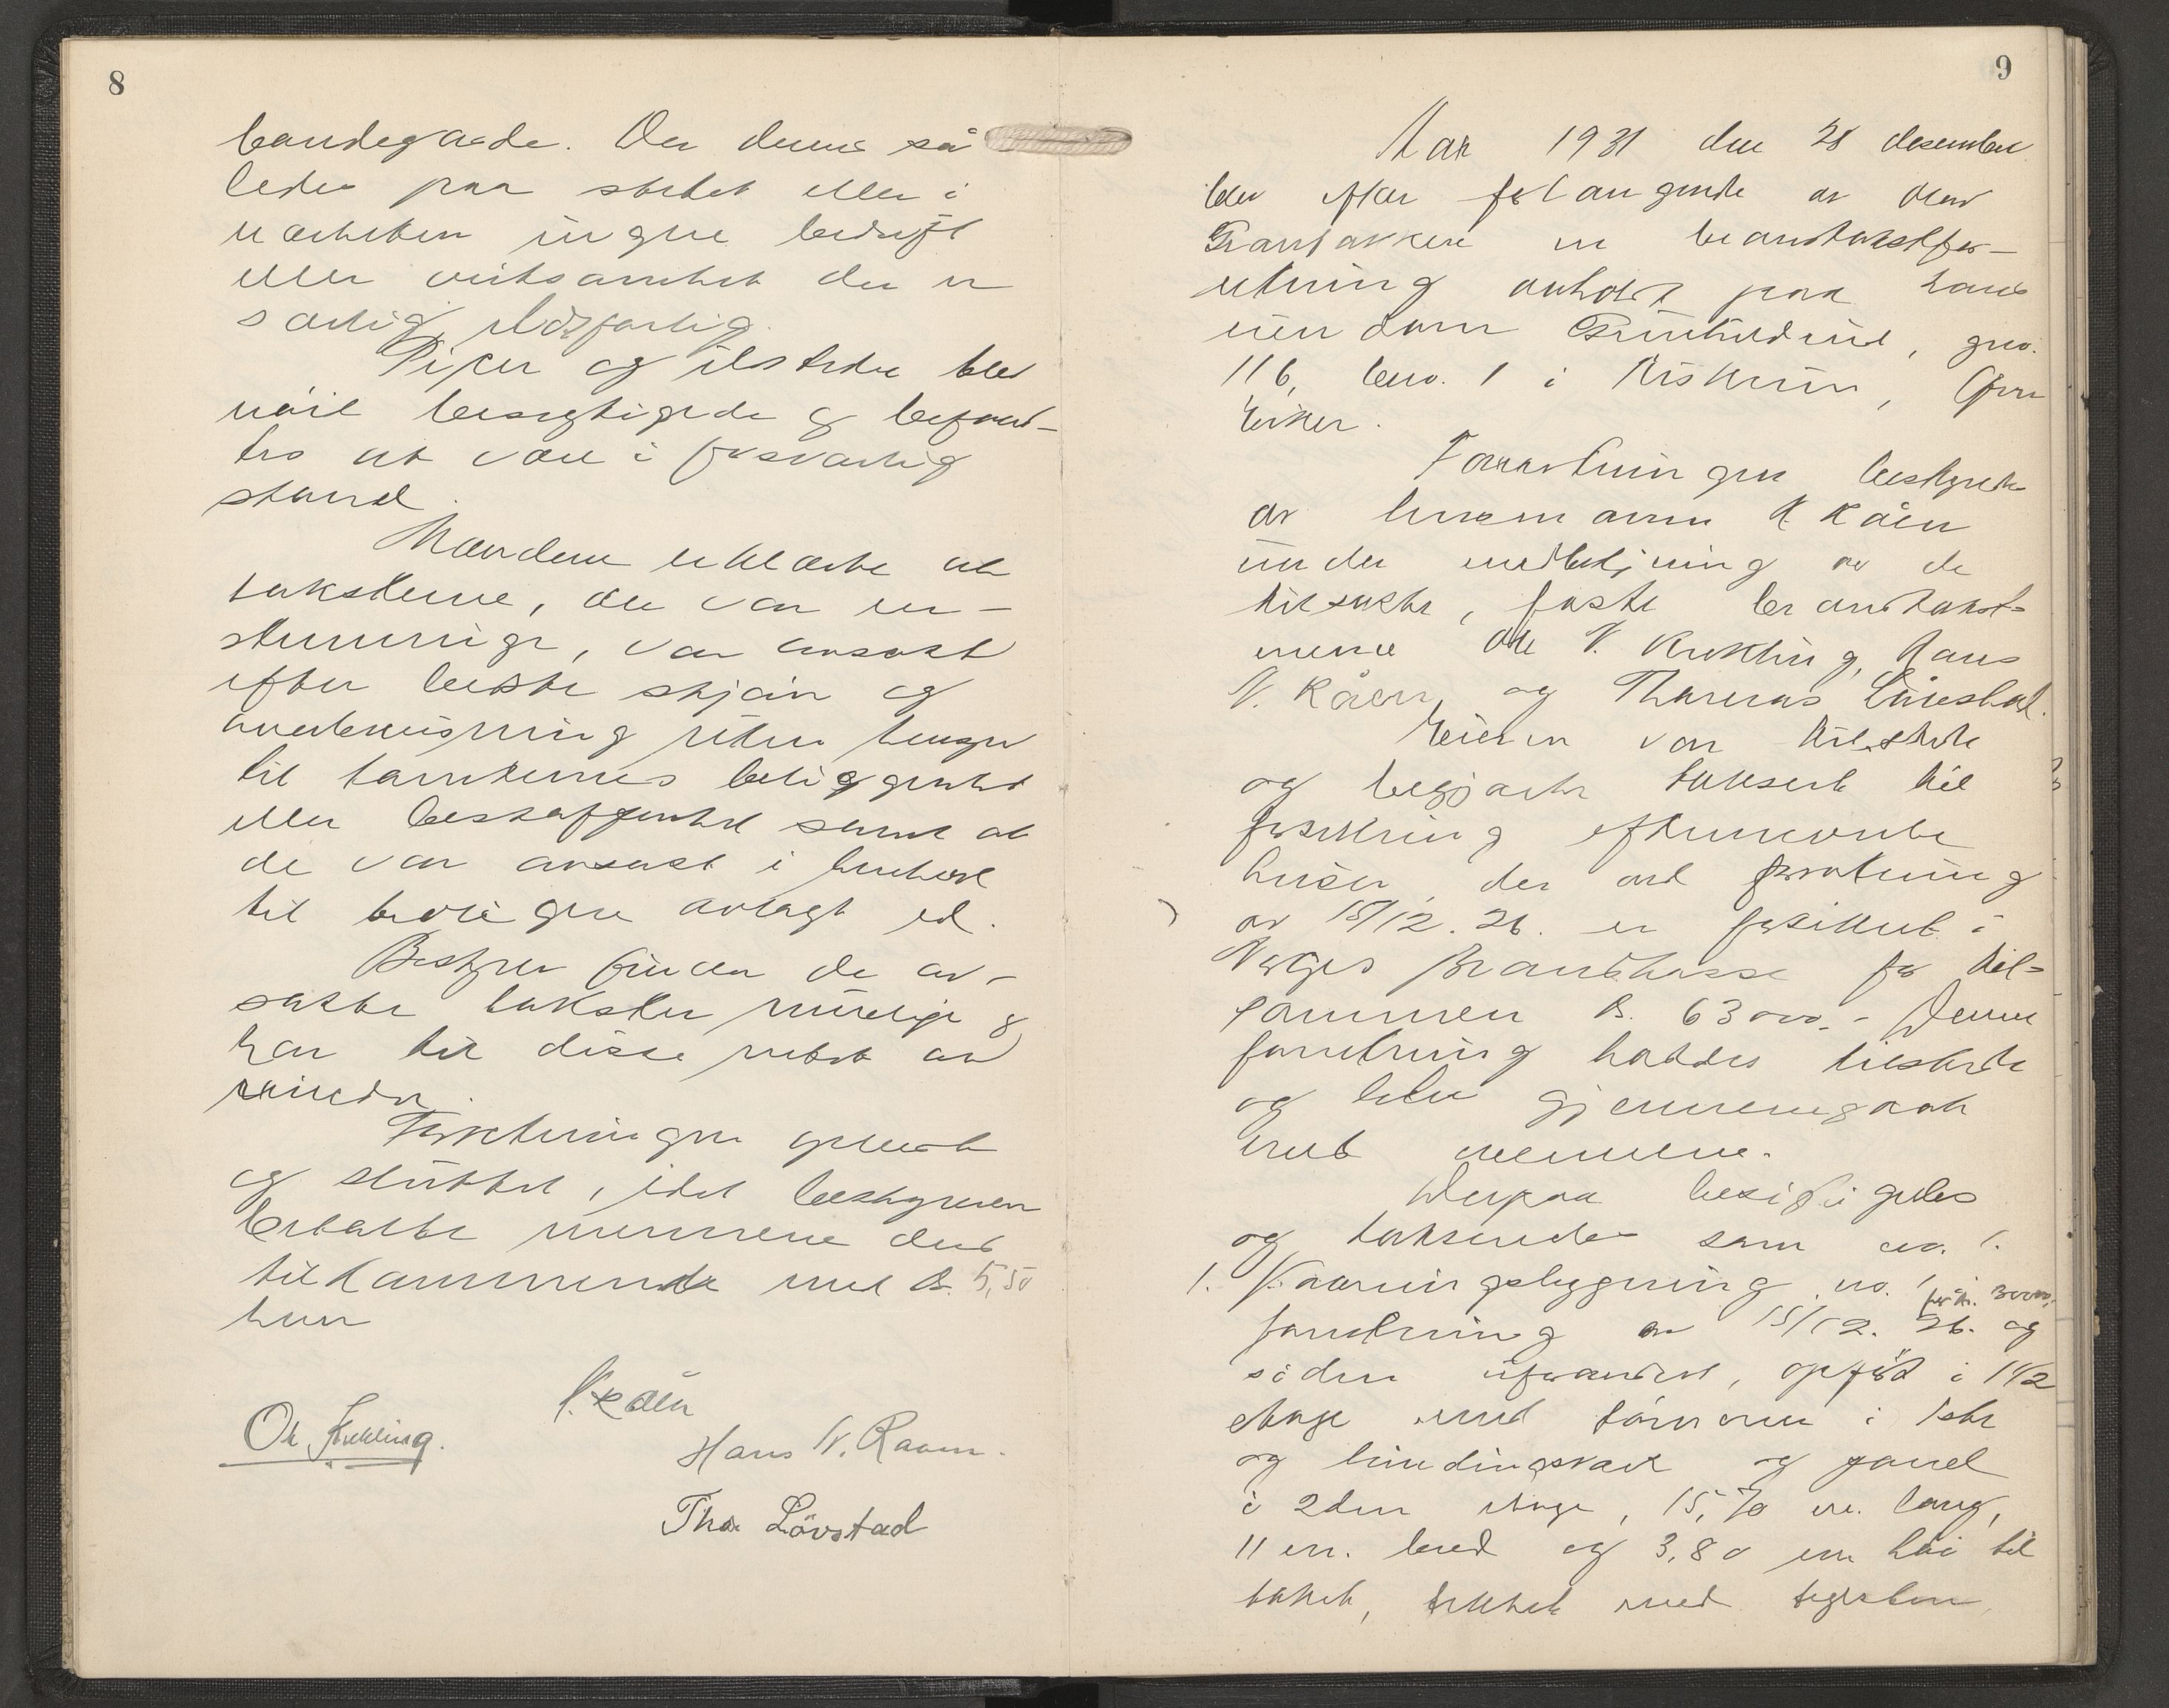 8
brandegarde. Der drives så
ledes paa stedet eller i
nærheten ingen bedrift
eller virksomhet der er
særlig ildsfarlig.
Piper og ildsteder blev
nöie besigtigede og befund-
tes at være i forsvarlig
stand.
Mændene erklærte at
taksterne, der var en-
stemmige, var ansatt
efter beste skjön og
overbevisning uten hensyn
til tomternes beliggenhet
eller beskaffenhet samt at
de var ansatt i henhold
til tidligere avlagt ed.
Bestyrer finder de an-
satte takster rimelige og
har til disse intet at
erindre.
Forretningen oplæst
og sluttet, idet bestyreren
betalte mennene deres
tilkommende med kr. 5,50
hver
Råen
Ole Kekling.
Hans N. Raaen.
Thos. Lövstad
9
Aar 1931 den 28 desember
blev efter forlangende av Olav
en brandtakstfor-
retning avholdt paa hans
eiendom, gno.
116, bno. 1 i, Övre
Eiker.
Forretningen bestyredes
av lensmann Råen
under medbetjening av de
tilsatte, faste brandtakst-
menn Ole Kekling, Hans
N. Råen og Thomas Lövstad.
Eieren var tilstede
og begjærte taksert til
forsikring efternevnte
huser, der ved forretning
av 15/12. 26. er forsikret i
Norges Brandkasse for til-
sammen kr. 63000.- Denne
forretning haddes tilstede
og blev gjennemgaat
med mennene.
Derpaa besigtigedes
og takseredes som no. 1.
1. Vaaningsbygning no. 1 i
for kr. 30000,-
forretning av 15/12. 26. og
siden uforandret, opfört i 1 1/2
etage med tömmer i 1ste
og bindingsverk og panel
i 2den etage, 15,70 m. lang,
11 m. bred og 3,80 m höi til
taket, tekket med teglsten,